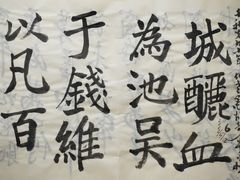 城釃血
為池吳
于錢維
以凡百